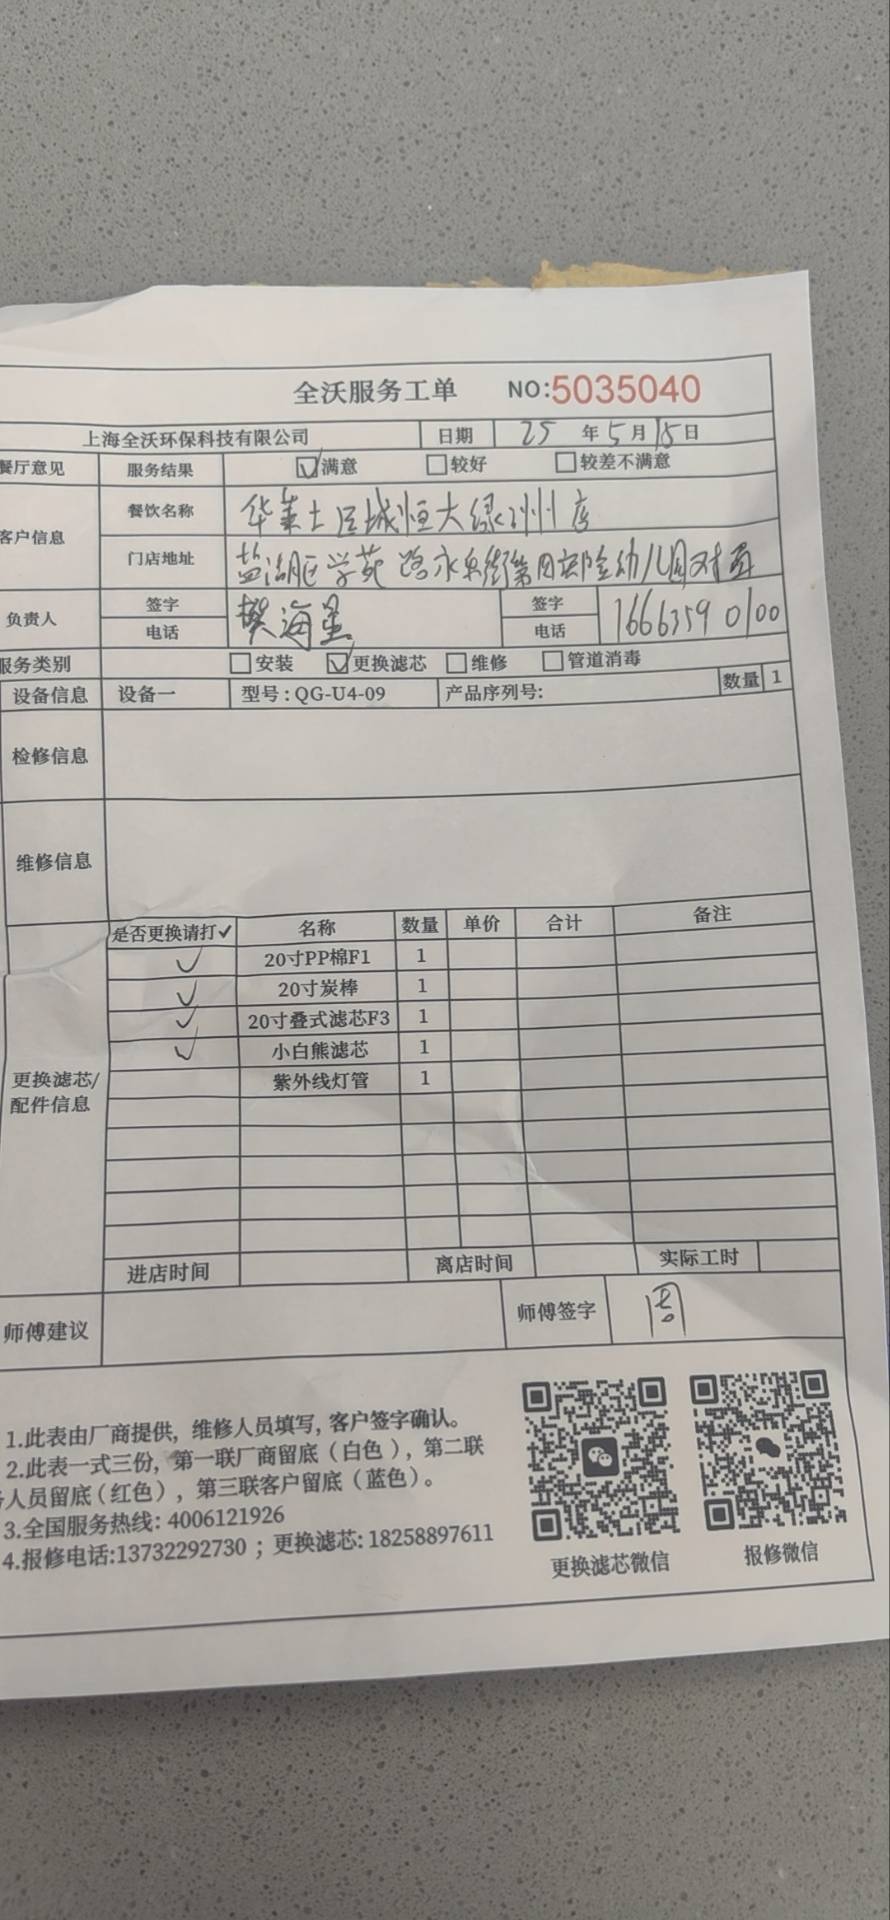 全沃服务工单 NO:5035040
上海全沃环保科技有限公司 日期 25 年 5 月 15 日
餐厅意见 服务结果 ☑满意 □较好 □较差不满意
客户信息 餐饮名称 华莱士区城恒大绿洲店
门店地址 盐湖区学苑路永东街第四实验幼儿园对面
负责人 签字 樊海星 签字
电话 电话 16663590100
服务类别 □安装 ☑更换滤芯 □维修 □管道消毒
设备信息 设备一 型号:QG-U4-09 产品序列号: 数量 1
检修信息
维修信息
是否更换请打✓ 名称 数量 单价 合计 备注
✓ 20寸PP棉F1 1
✓ 20寸炭棒 1
✓ 20寸叠式滤芯F3 1
✓ 小白熊滤芯 1
紫外线灯管 1
更换滤芯/
配件信息
进店时间 离店时间 实际工时
师傅建议 师傅签字 周
1.此表由厂商提供, 维修人员填写, 客户签字确认。
2.此表一式三份, 第一联厂商留底(白色), 第二联
人员留底(红色), 第三联客户留底(蓝色)。
3.全国服务热线: 4006121926
4.报修电话:13732292730 ; 更换滤芯: 18258897611
更换滤芯微信 报修微信